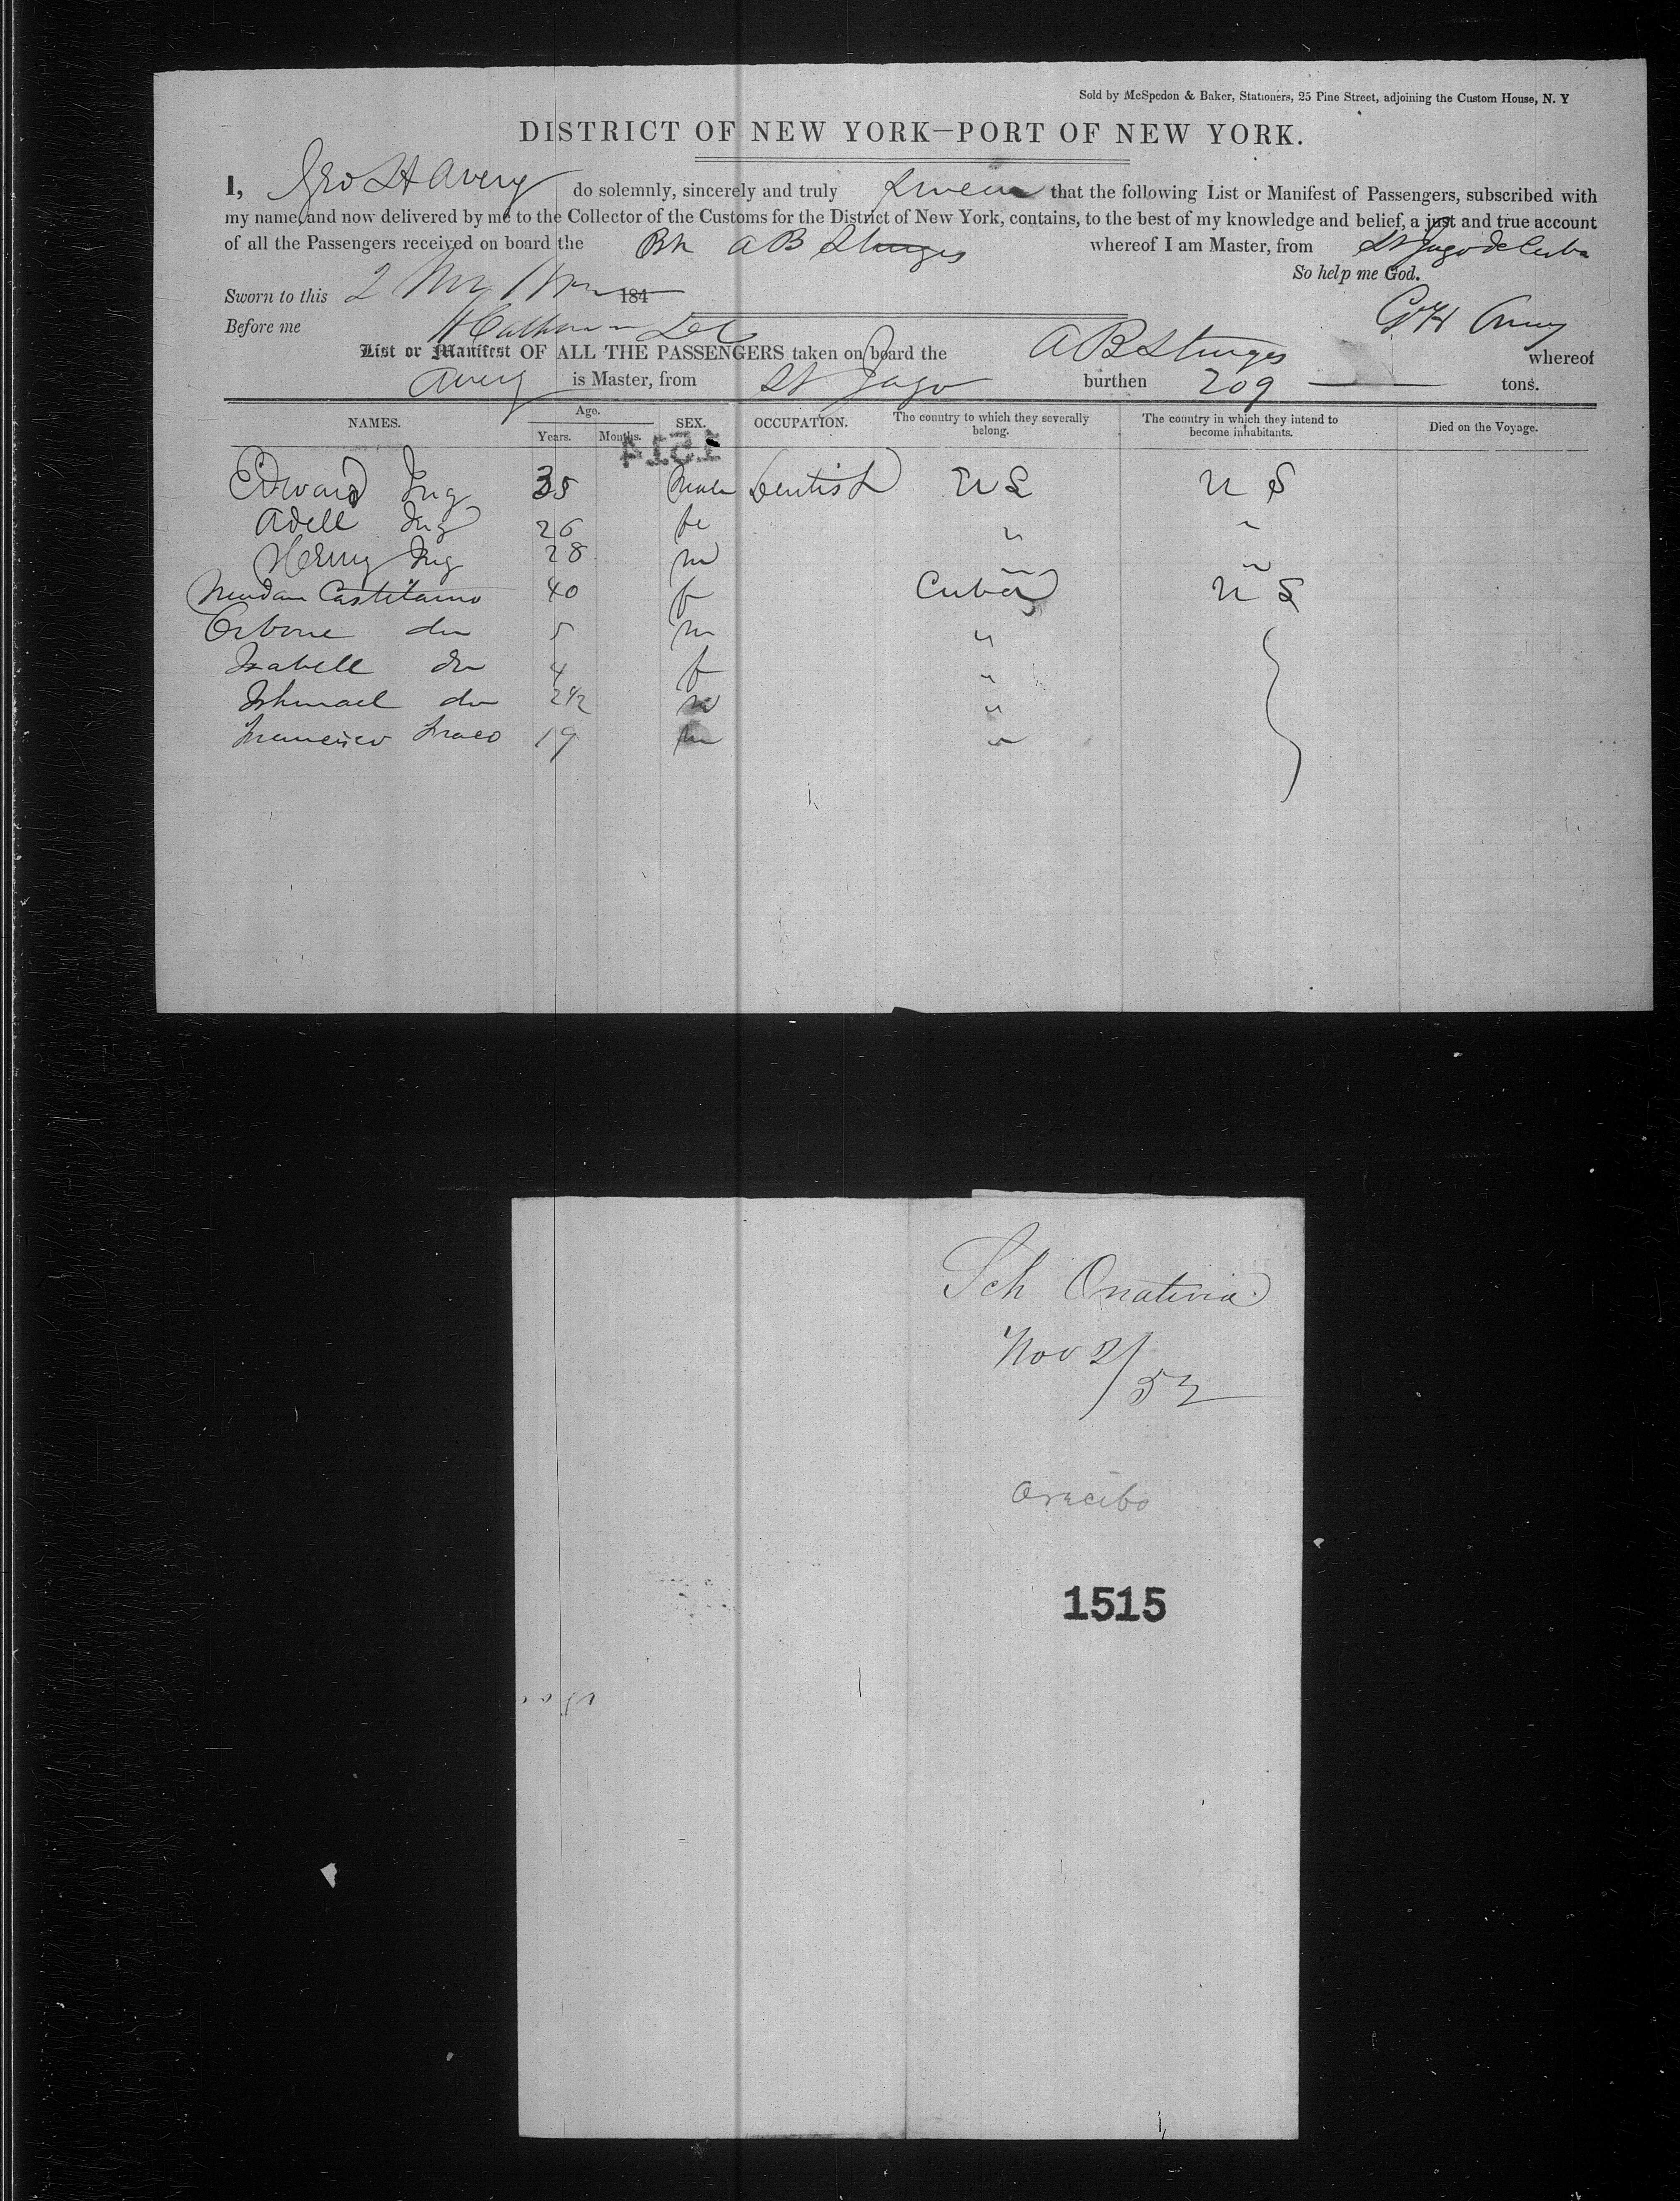 Sold by McSpedon & Baker, Stationers, 25 Pine Street, adjoining the Custom House, N. Y
DISTRICT OF NEW YORK—PORT OF NEW YORK.
I, Geo H Avery do solemnly, sincerely and truly swear that the following List or Manifest of Passengers, subscribed with
my name, and now delivered by me to the Collector of the Customs for the District of New York, contains, to the best of my knowledge and belief, a just and true account
of all the Passengers received on board the Bk A B Sturges whereof I am Master, from St Jago de Cuba
So help me God.
Sworn to this 2 184
Before me Geo H Avery
List or Manifest OF ALL THE PASSENGERS taken on board the A B Sturges whereof
Avery is Master, from St Jago burthen 209 tons.
NAMES. Age. Years. Months. SEX. OCCUPATION. The country to which they severally belong. The country in which they intend to become inhabitants. Died on the Voyage.
1514
Edward 35 Male Dentist U S U S
Adell 26 fe " "
Henry 28 m " "
Castitano 40 f Cuba U S
do 5 m "
Isabell do 4 f "
Ishmael do 2 1/2 m "
Francisco 19 m "
Sch Onativia
Nov 2/52
Arecibo
1515